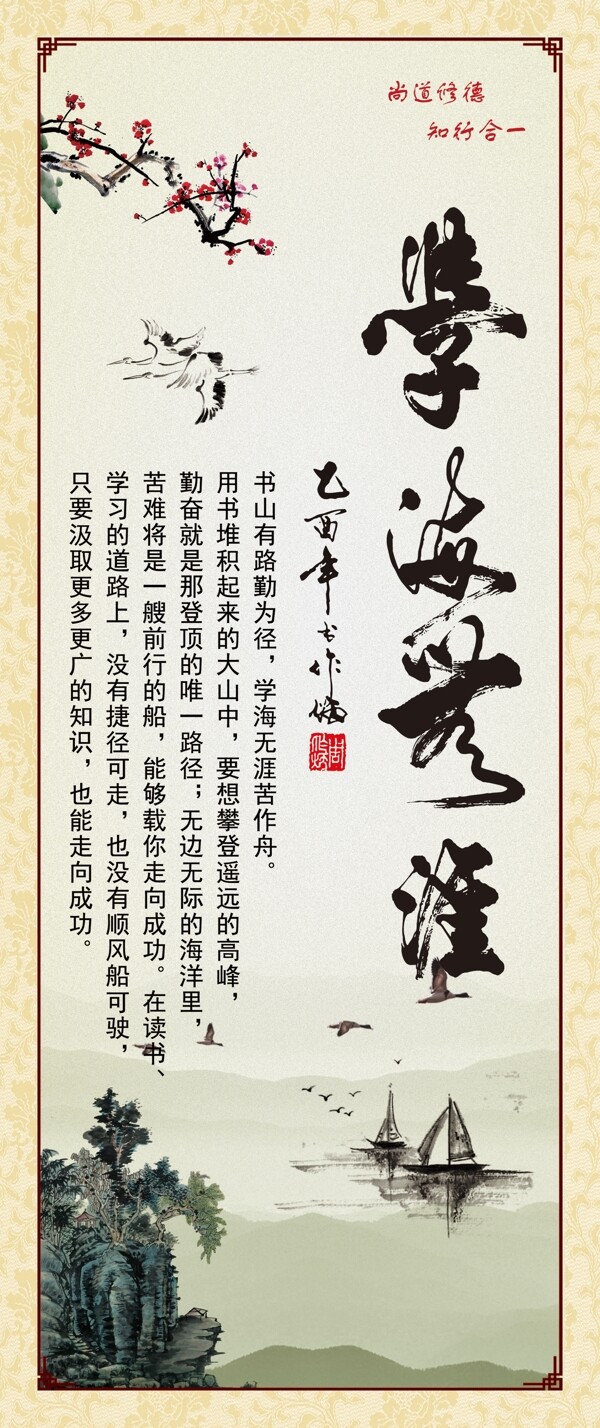 尚道修德
知行合一
学海无涯
乙酉年书作
书山有路勤为径，学海无涯苦作舟。
用书堆积起来的大山中，要想攀登遥远的高峰，
勤奋就是那登顶的唯一路径；无边无际的海洋里，
苦难将是一艘前行的船，能够载你走向成功。在读书、
学习的道路上，没有捷径可走，也没有顺风船可驶，
只要汲取更多更广的知识，也能走向成功。